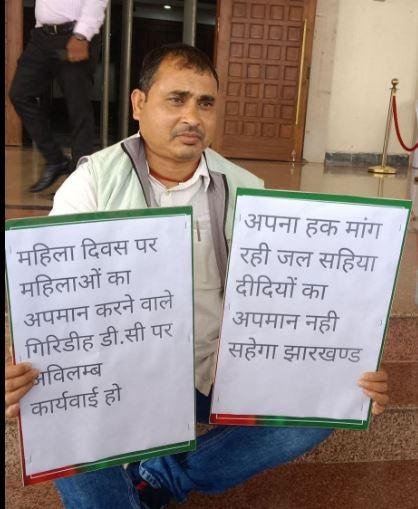 महिला दिवस पर
महिलाओं का
अपमान करने वाले
गिरिडीह डी.सी पर
अविलम्ब
कार्यवाई हो
अपना हक मांग
रही जल सहिया
दीदियों का
अपमान नही
सहेगा झारखण्ड